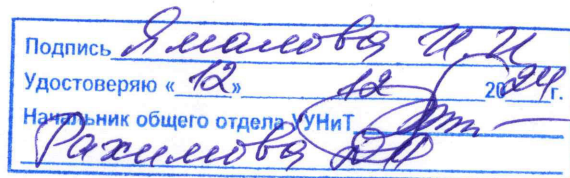 Подпись Ямалова И.И
Удостоверяю «12» 12 2024г.
Начальник общего отдела УУНиТ
Рахимова